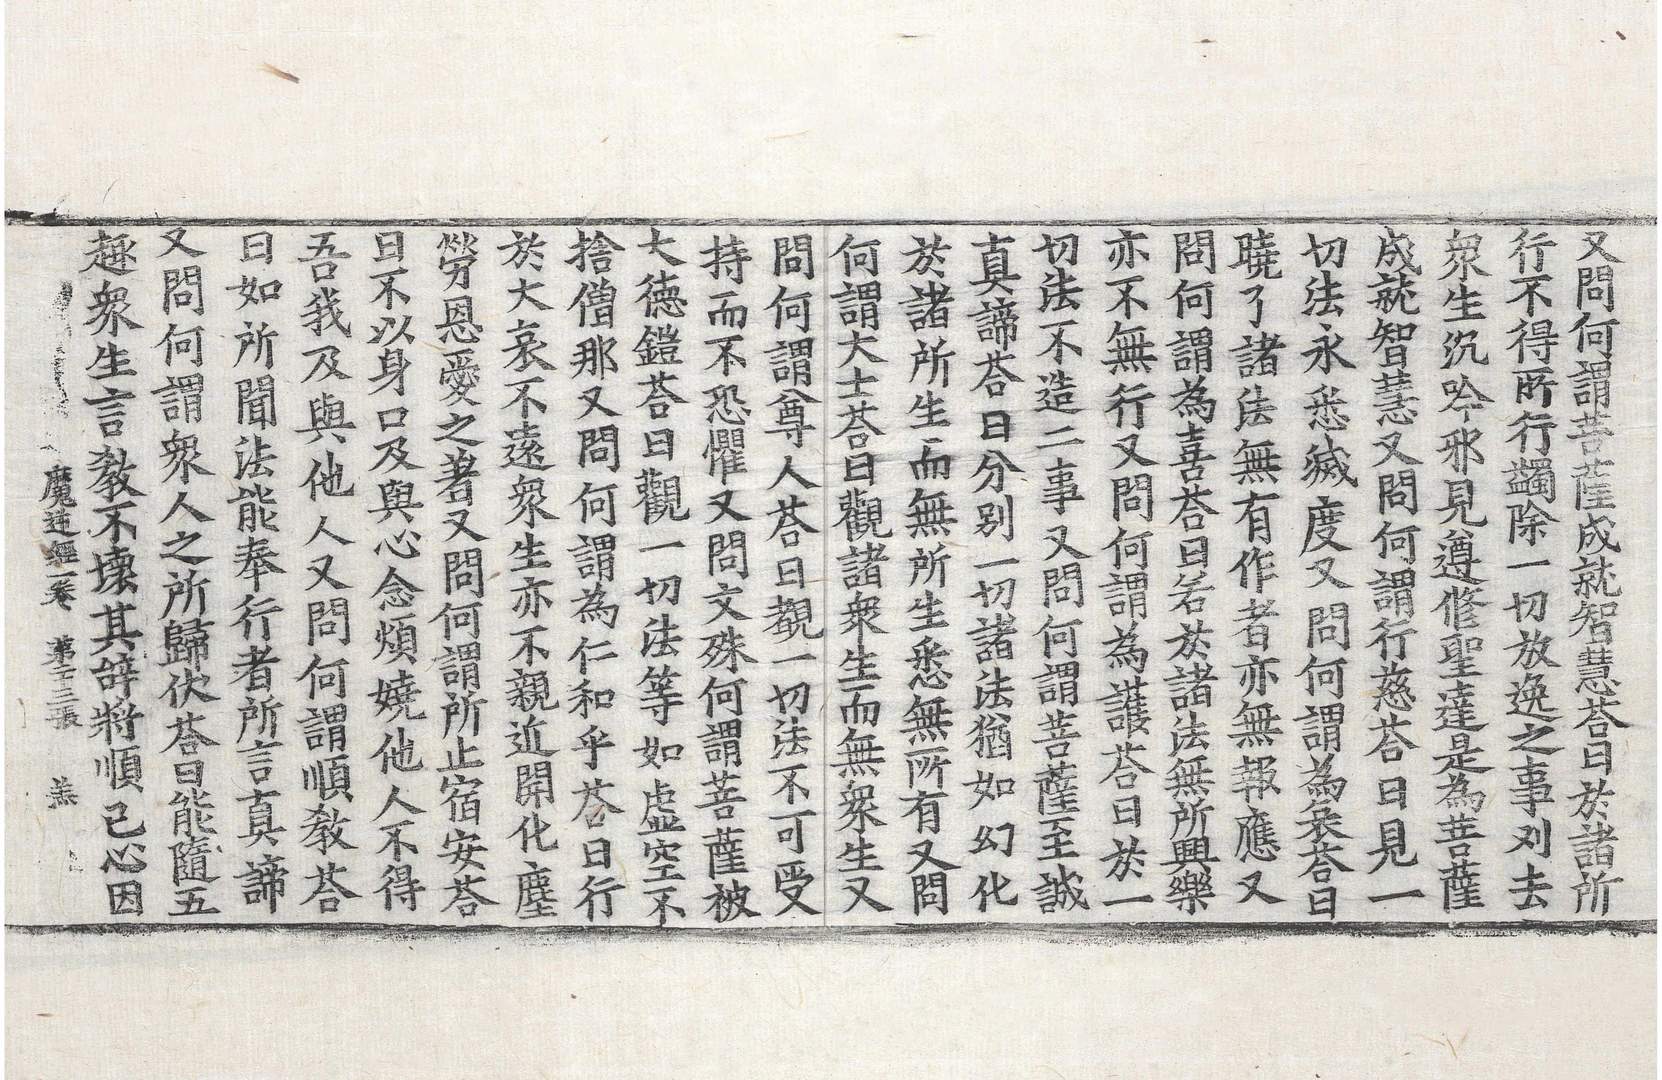 又問何謂菩薩成就智慧荅曰於諸所
行不得所行蠲除一切放逸之事刈去
衆生沉吟邪見遵修聖達是為菩薩
成就智慧又問何謂行慈荅曰見一
切法永悉滅度又問何謂為哀荅曰
曉了諸法無有作者亦無報應又
問何謂為喜荅曰若於諸法無所興樂
亦不無行又問何謂為護荅曰於一
切法不造二事又問何謂菩薩至誠
真諦荅曰分別一切諸法猶如幻化
於諸所生而無所生悉無所有又問
何謂大士荅曰觀諸衆生而無衆生又
問何謂尊人荅曰觀一切法不可受
持而不恐懼又問文殊何謂菩薩被
大德鎧荅曰觀一切法等如虛空不
捨僧那又問何謂為仁和乎荅曰行
於大哀不遠衆生亦不親近開化塵
勞恩愛之著又問何謂所止宿安荅
曰不以身口及與心念煩嬈他人不得
吾我及與他人又問何謂順教荅
曰如所聞法能奉行者所言真諦
又問何謂衆人之所歸伏荅曰能隨五
趣衆生言教不壞其辞將順己心因
魔逆經一卷　第十三張　羔